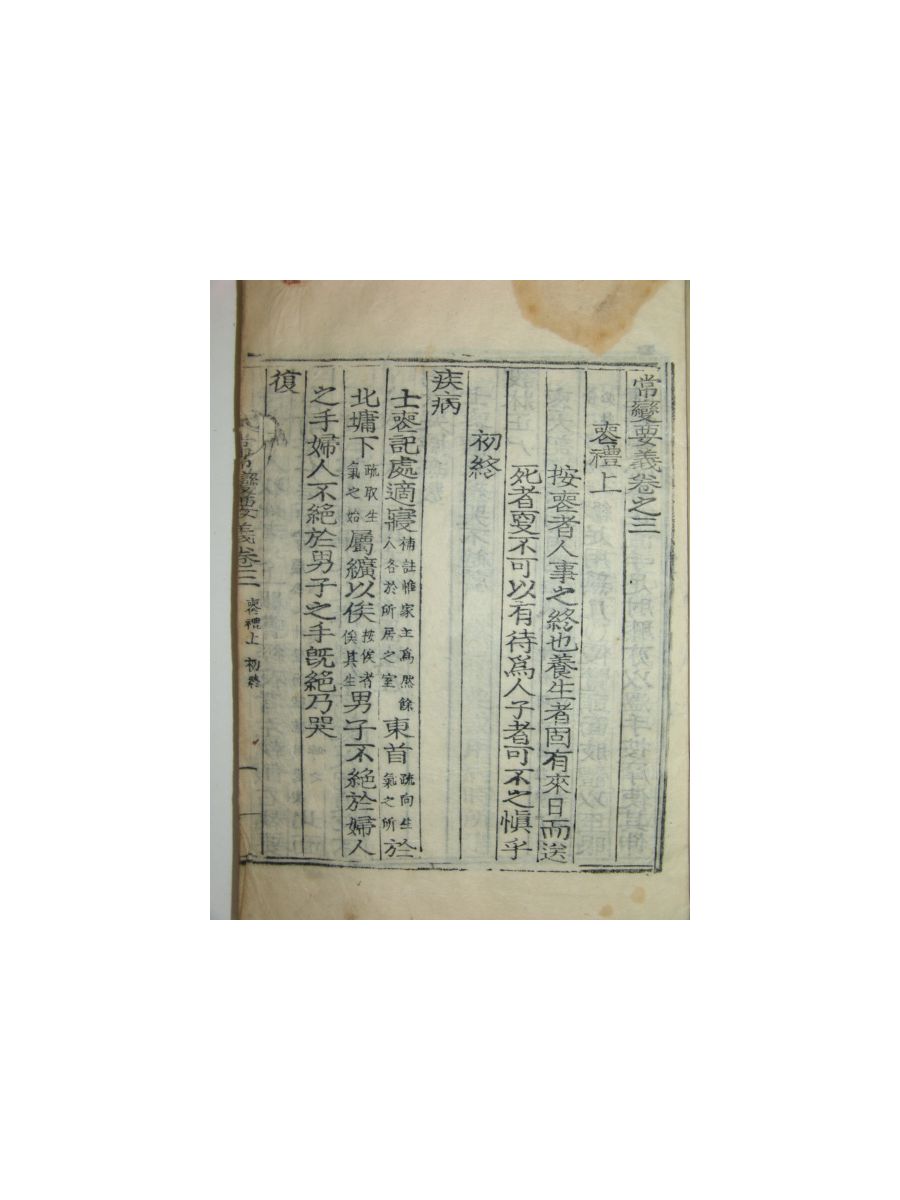 常變要義卷之三
喪禮上
按喪者人事之終也養生者固有來日而送
死者更不可以有待爲人子者可不之愼乎
初終
疾病
士喪記處適寢補註惟家主爲然餘人各於所居之室東首疏向生氣之所於
北墉下疏取生氣之始屬纊以俟按俟者俟其生男子不絶於婦人
之手婦人不絶於男子之手旣絶乃哭
復
常變要義卷三 喪禮上 初終 一